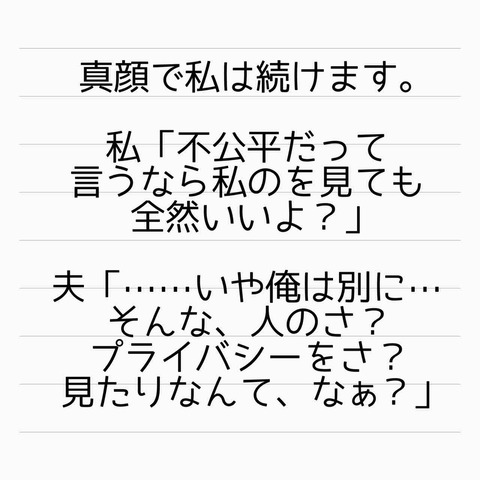 真顔で私は続けます。
私「不公平だって
言うなら私のを見ても
全然いいよ？」
夫「……いや俺は別に…
そんな、人のさ？
プライバシーをさ？
見たりなんて、なぁ？」